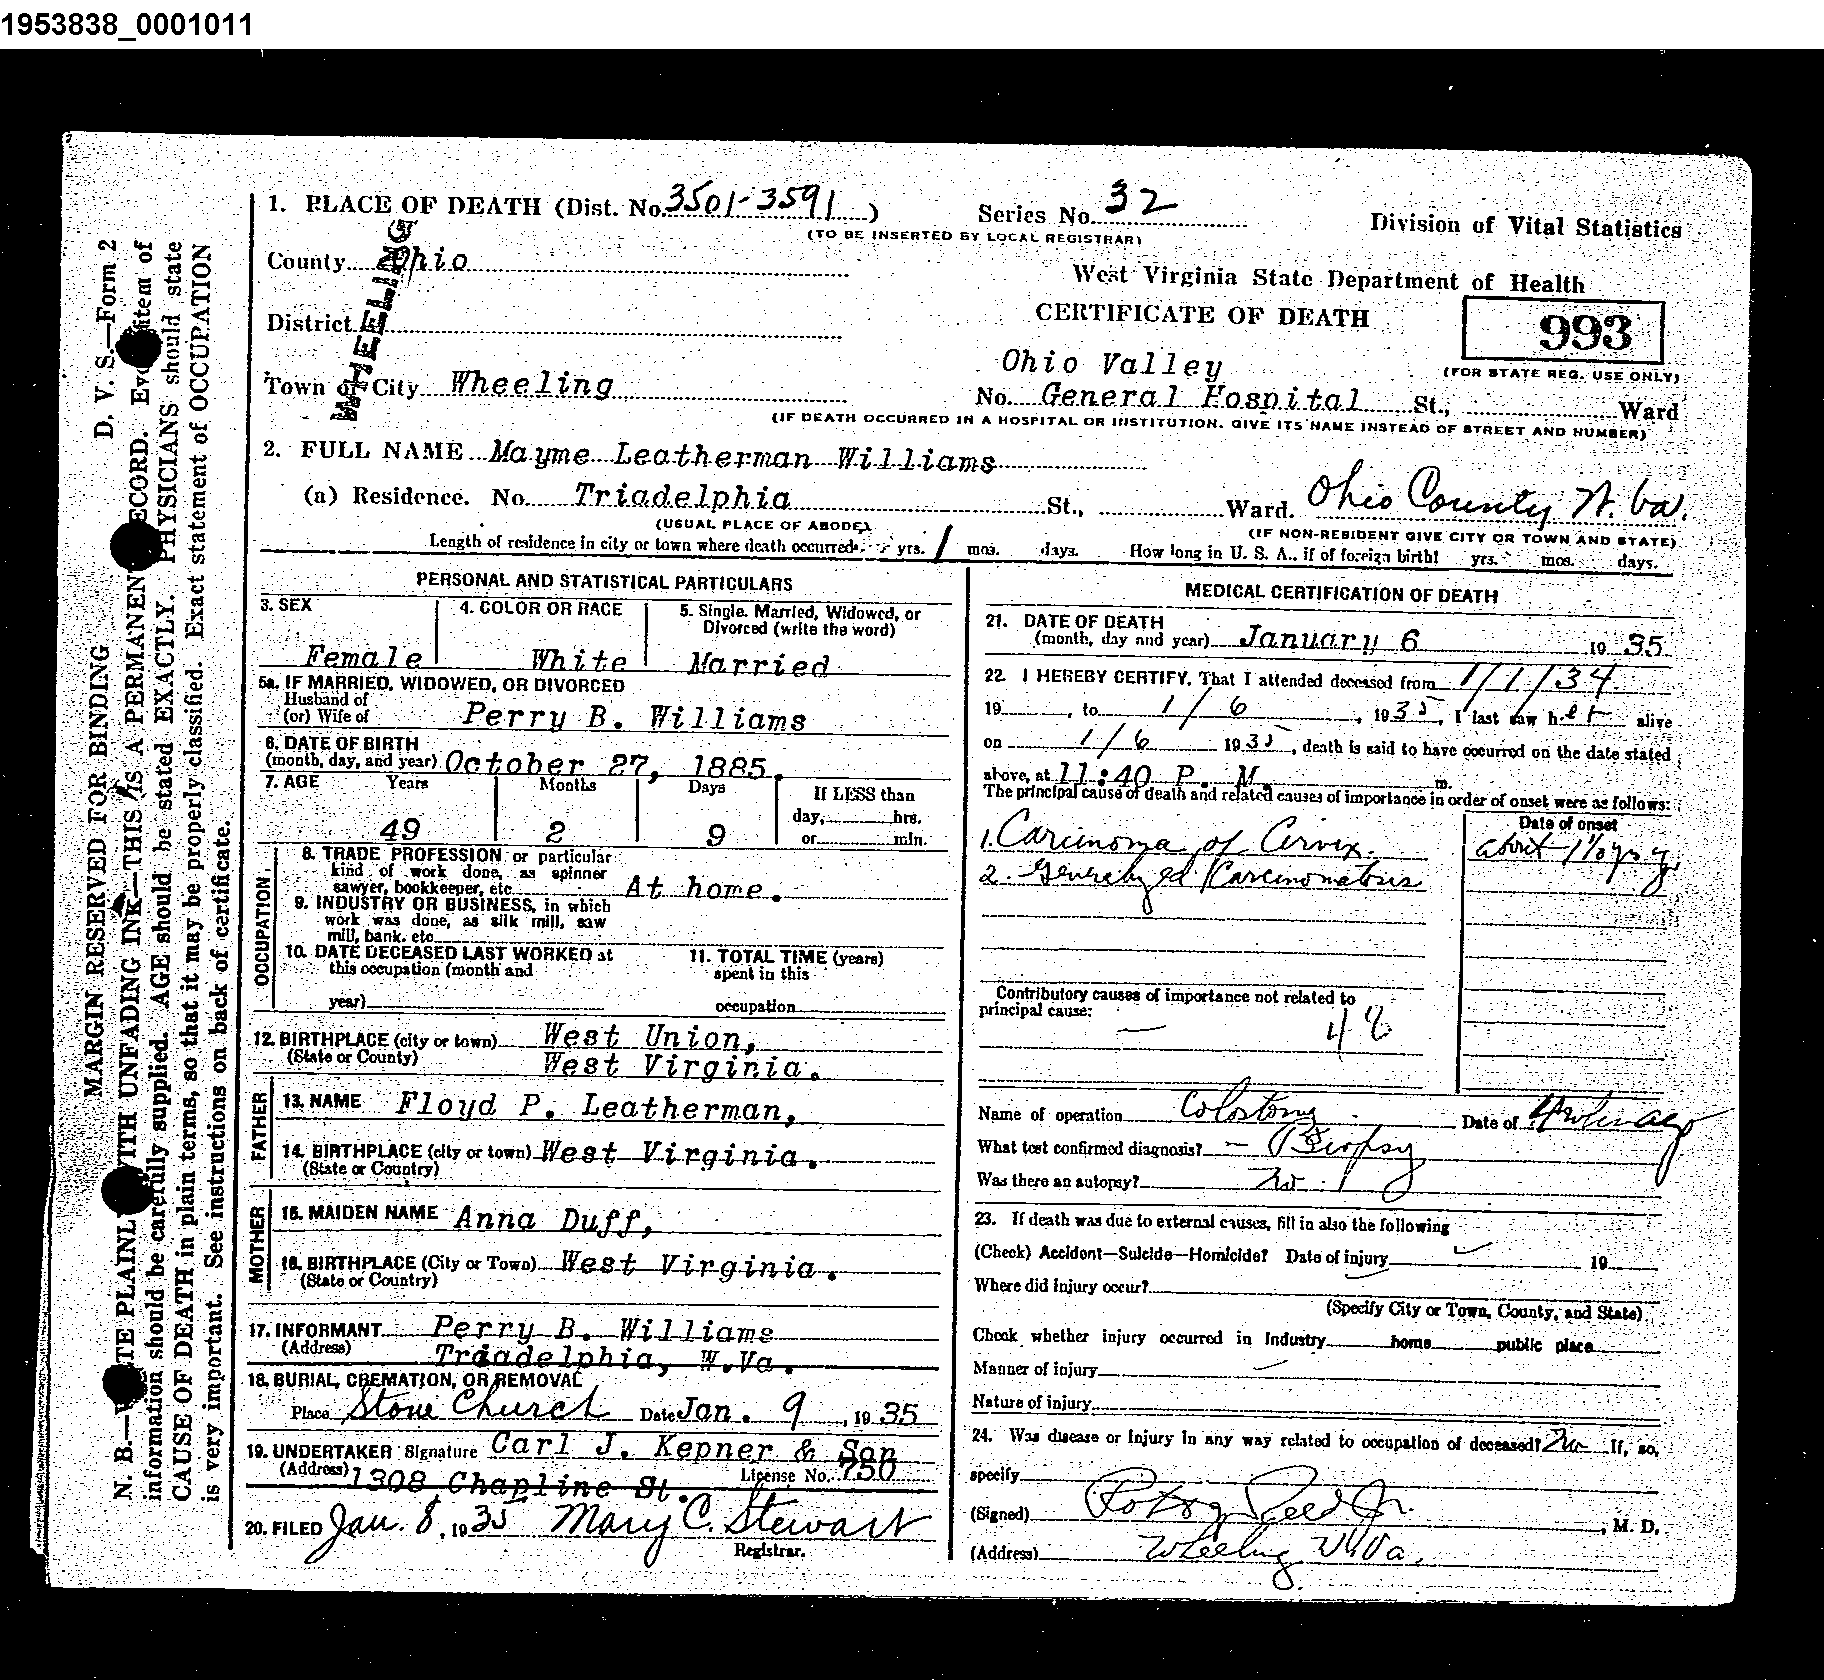 1953838_0001011
1. PLACE OF DEATH (Dist. No. 3501-3591 )
Series No. 32
(TO BE INSERTED BY LOCAL REGISTRAR)
Division of Vital Statistics
County Ohio
WHEELING
West Virginia State Department of Health
CERTIFICATE OF DEATH
993
(FOR STATE REG. USE ONLY)
District
Town or City Wheeling
Ohio Valley
No. General Hospital St., Ward
(IF DEATH OCCURRED IN A HOSPITAL OR INSTITUTION, GIVE ITS NAME INSTEAD OF STREET AND NUMBER)
2. FULL NAME Mayme Leatherman Williams
(a) Residence. No. Triadelphia St., Ward. Ohio County W. Va.
(USUAL PLACE OF ABODE)
(IF NON-RESIDENT GIVE CITY OR TOWN AND STATE)
Length of residence in city or town where death occurred yrs. 1 mos. days. How long in U. S. A., if of foreign birth? yrs. mos. days.
PERSONAL AND STATISTICAL PARTICULARS
3. SEX
Female
4. COLOR OR RACE
White
5. Single, Married, Widowed, or
Divorced (write the word)
Married
5a. IF MARRIED, WIDOWED, OR DIVORCED
Husband of
(or) Wife of Perry B. Williams
6. DATE OF BIRTH
(month, day, and year) October 27, 1885.
7. AGE Years Months Days
49 2 9
If LESS than
day, hrs.
or min.
OCCUPATION
8. TRADE PROFESSION or particular
kind of work done, as spinner
sawyer, bookkeeper, etc. At home.
9. INDUSTRY OR BUSINESS, in which
work was done, as silk mill, saw
mill, bank, etc
10. DATE DECEASED LAST WORKED at
this occupation (month and
year)
11. TOTAL TIME (years)
spent in this
occupation
12. BIRTHPLACE (city or town) West Union,
(State or County) West Virginia.
FATHER
13. NAME Floyd P. Leatherman,
14. BIRTHPLACE (city or town) West Virginia.
(State or Country)
MOTHER
15. MAIDEN NAME Anna Duff,
16. BIRTHPLACE (City or Town) West Virginia.
(State or Country)
17. INFORMANT Perry B. Williams
(Address) Triadelphia, W.Va.
18. BURIAL, CREMATION, OR REMOVAL
Place Stone Church Date Jan. 9, 1935
19. UNDERTAKER Signature Carl J. Kepner & Son
(Address) 1308 Chapline St. License No. 750
20. FILED Jan. 8, 1935 Mary C. Stewart
Registrar.
MEDICAL CERTIFICATION OF DEATH
21. DATE OF DEATH
(month, day and year) January 6 19 35
22. I HEREBY CERTIFY, That I attended deceased from 1/1/34
19 , to 1/6 , 1935, I last saw her alive
on 1/6 1935, death is said to have occurred on the date stated
above, at 11:40 P. M. m.
The principal cause of death and related causes of importance in order of onset were as follows:
Date of onset
1. Carcinoma of Cervix. about
2. Generalized Carcinomatosis
Contributory causes of importance not related to
principal cause:
—
48
Name of operation Colostomy Date of
What test confirmed diagnosis? — Biopsy
Was there an autopsy? No
23. If death was due to external causes, fill in also the following
(Check) Accident—Suicide—Homicide? Date of injury 19
Where did injury occur?
(Specify City or Town, County, and State)
Check whether injury occurred in Industry home public place
Manner of injury
Nature of injury
24. Was disease or injury in any way related to occupation of deceased? No If, so,
specify
(Signed) Reed Jr. , M. D.
(Address) Wheeling W Va.
MARGIN RESERVED FOR BINDING D. V. S.—Form 2
N. B.—WRITE PLAINLY WITH UNFADING INK—THIS IS A PERMANENT RECORD. Every item of
information should be carefully supplied. AGE should be stated EXACTLY. PHYSICIANS should state
CAUSE OF DEATH in plain terms, so that it may be properly classified. Exact statement of OCCUPATION
is very important. See instructions on back of certificate.